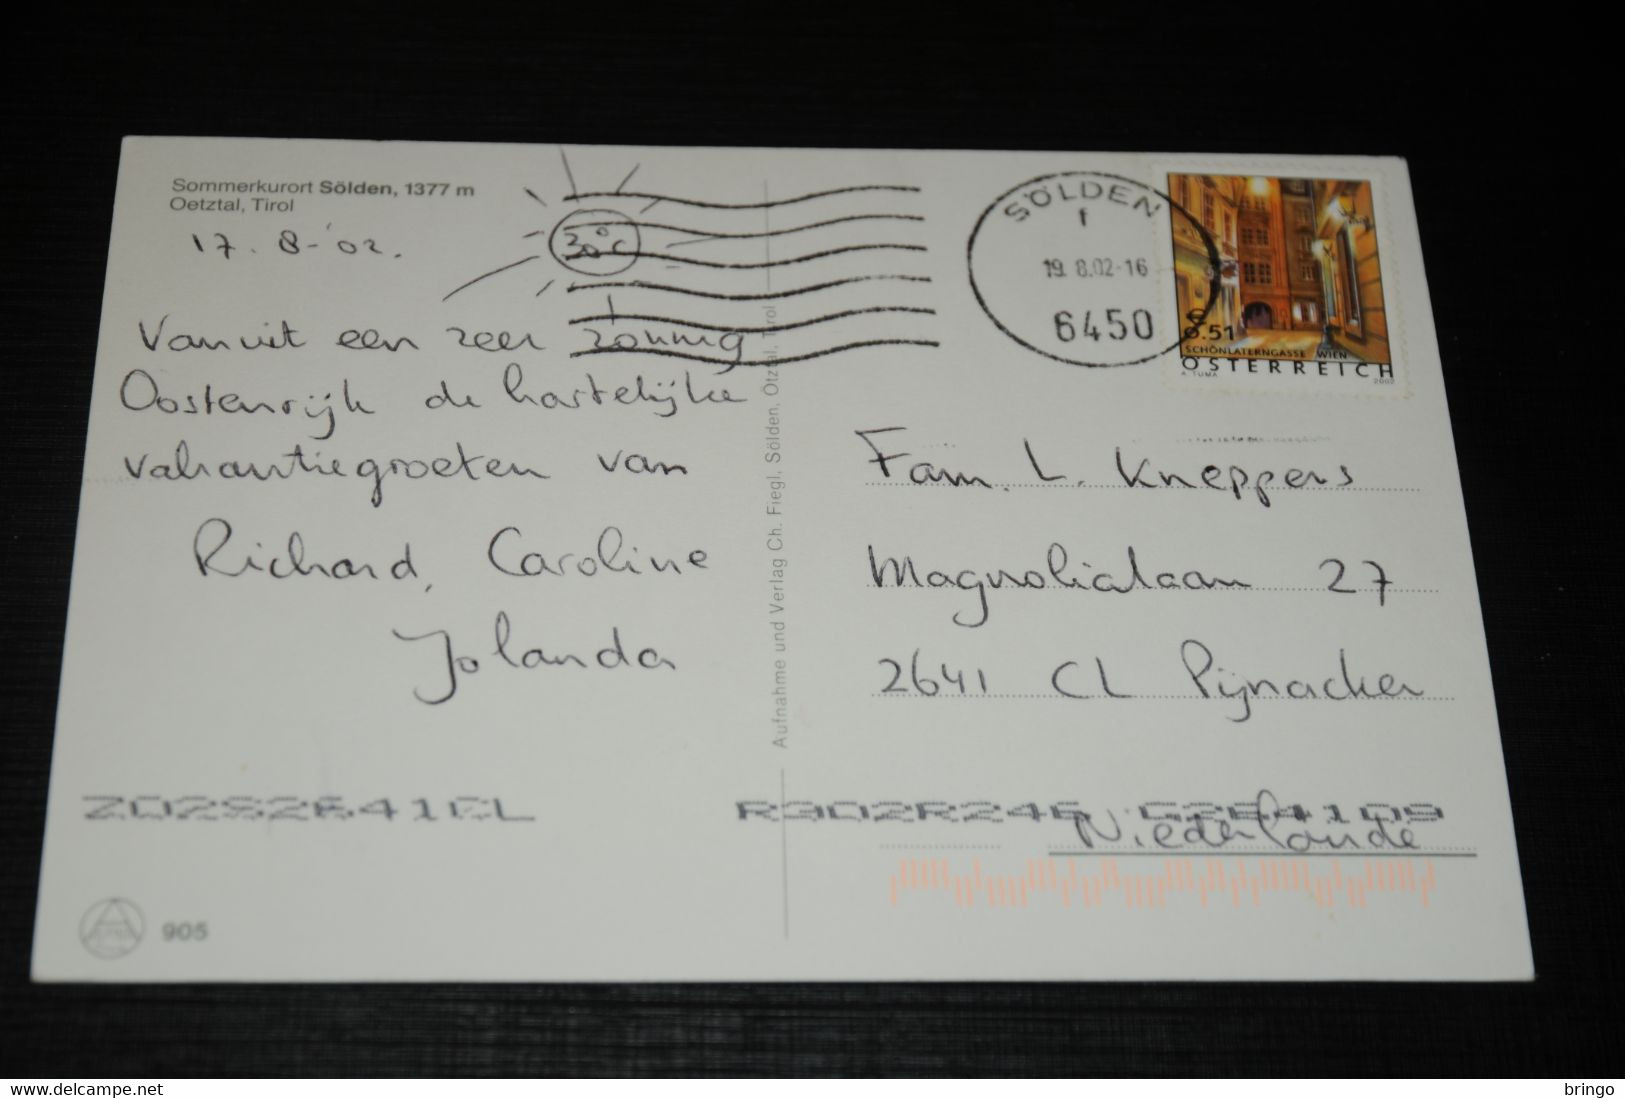 Sommerkurort Sölden, 1377 m
Oetztal, Tirol
17.8-'02.
30°C
Vanuit een zeer zonnig
Oostenrijk de hartelijke
vakantiegroeten van
Richard, Caroline
Jolanda
Aufnahme und Verlag Ch. Fiegl, Sölden, Ötztal, Tirol
SÖLDEN
f
19.8.02-16
6450
€ 0.51
SCHÖNLATERNGASSE WIEN
ÖSTERREICH
A. TUMA 2002
Fam. L. Kneppers
Magnolialaan 27
2641 CL Pijnacker
Niederlande
905
bringo